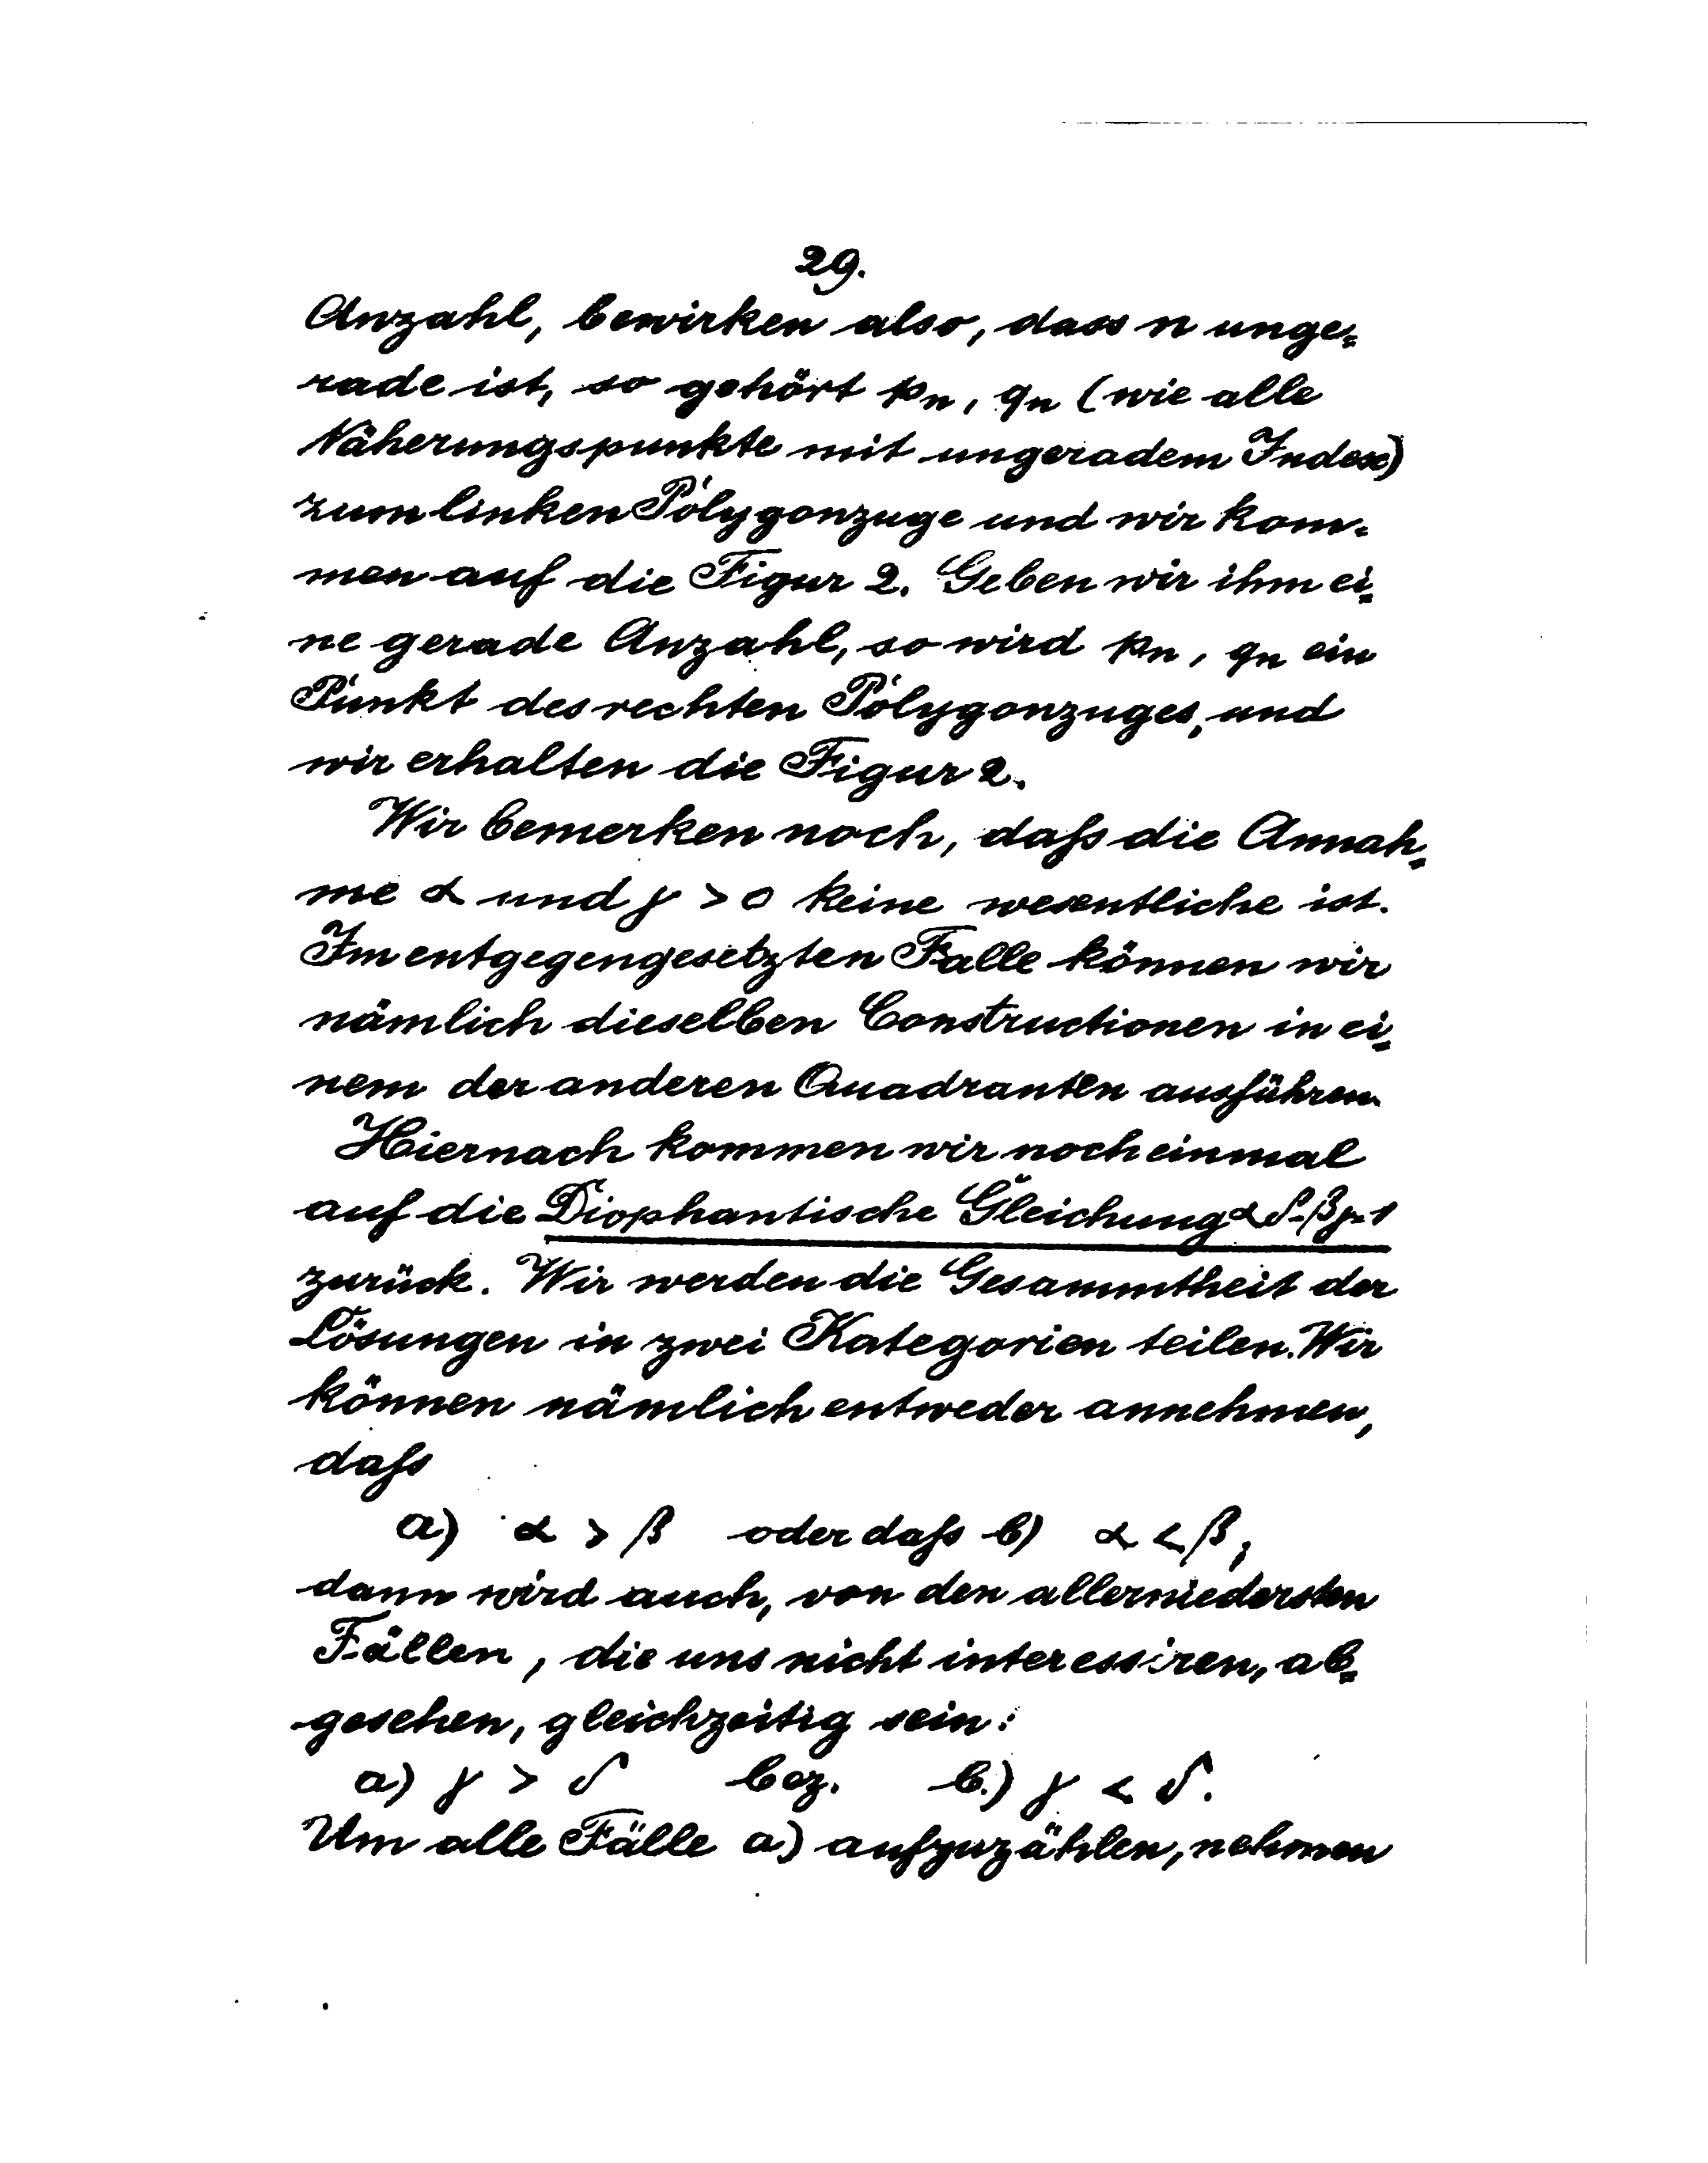 29.
Anzahl, bewirken also, dass n unge=
rade ist, so gehört pₙ, qₙ (wie alle
Näherungspunkte mit ungeradem Index)
zum linken Polygonzuge und wir kom=
men auf die Figur 2. Geben wir ihm ei=
ne gerade Anzahl, so wird pₙ, qₙ ein
Punkt des rechten Polygonzuges, und
wir erhalten die Figur 2.
Wir bemerken noch, daſs die Annah=
me α und γ > 0 keine wesentliche ist.
Im entgegengesetzten Falle können wir
nämlich dieselben Constructionen in ei=
nem der anderen Quadranten ausführen.
Hiernach kommen wir noch einmal
auf die Diophantische Gleichung αδ-βγ=1
zurück. Wir werden die Gesammtheit der
Lösungen in zwei Kategorien teilen. Wir
können nämlich entweder annehmen,
daſs
a) α > β oder daſs b) α < β,
dann wird auch, von den allerniedersten
Fällen, die uns nicht interessiren, ab=
gesehen, gleichzeitig sein:
a) γ > δ bez. b.) γ < δ.
Um alle Fälle a) aufzuzählen, nehmen